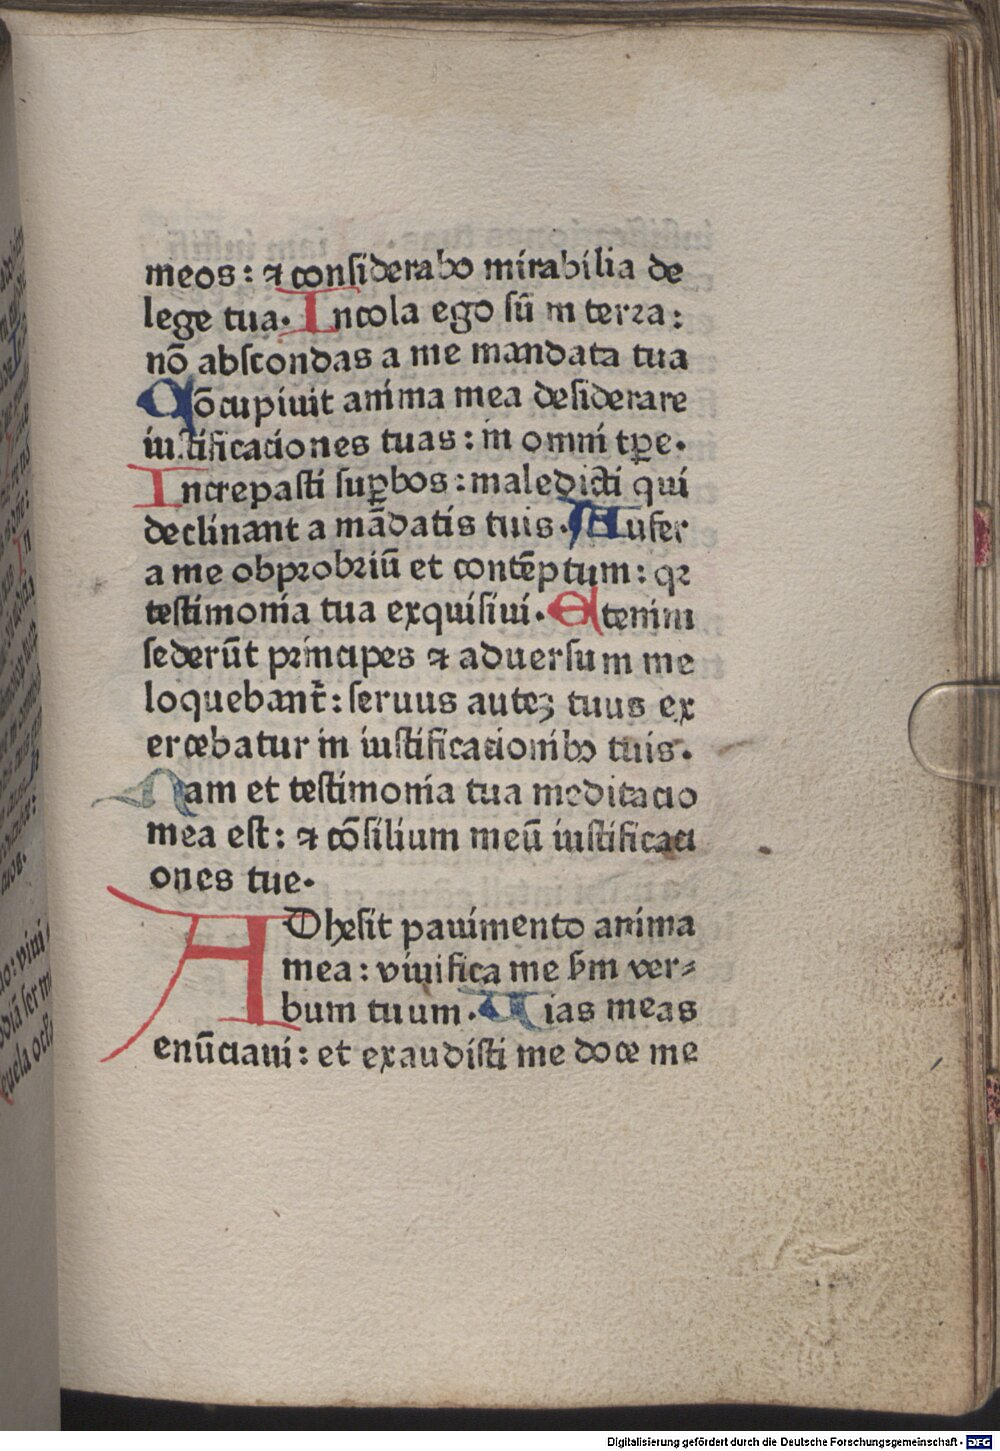 meos: ⁊ considerabo mirabilia de
lege tua. Incola ego sū in terra:
nō abscondas a me mandata tua
Cōcupiuit anima mea desiderare
iustificaciones tuas: in omni tꝑe.
Increpasti suꝑbos: maledicti qui
declinant a mādatis tuis. Aufer
a me obprobriū et contēptum: qꝛ
testimonia tua exquisiui. Etenim
sederūt principes ⁊ aduersum me
loquebant̄: seruus auteꝫ tuus ex
ercebatur in iustificacionibꝰ tuis.
Nam et testimonia tua meditacio
mea est: ⁊ cōsilium meū iustificaci
ones tue.
ADhesit pauimento anima
mea: viuifica me ẜm ver⸗
bum tuum. Uias meas
enūciaui: et exaudisti me doce me
Digitalisierung gefördert durch die Deutsche Forschungsgemeinschaft - DFG